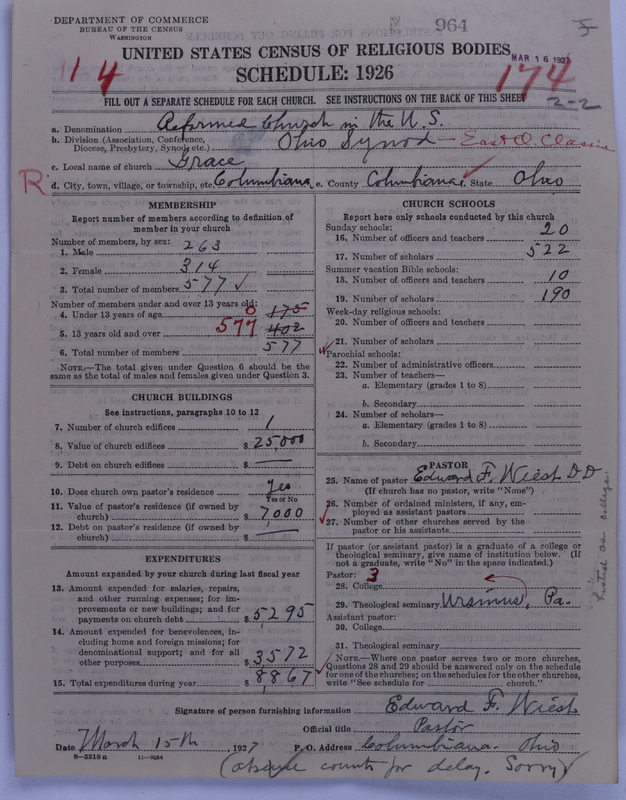 DEPARTMENT OF COMMERCE
BUREAU OF THE CENSUS
WASHINGTON
964
UNITED STATES CENSUS OF RELIGIOUS BODIES
MAR 16 1927
SCHEDULE: 1926
114
174
2-2
FILL OUT A SEPARATE SCHEDULE FOR EACH CHURCH. SEE INSTRUCTIONS ON THE BACK OF THIS SHEET
a. Denomination Reformed Church in the U.S.
b. Division (Association, Conference, Diocese, Presbytery, Synod, etc.) Ohio Synod — East O. Classis
c. Local name of church Grace
R d. City, town, village, or township, etc. Columbiana e. County Columbiana State Ohio
MEMBERSHIP
Report number of members according to definition of member in your church
Number of members, by sex:
1. Male 263
2. Female 314
3. Total number of members 577
Number of members under and over 13 years old:
4. Under 13 years of age 0 175
5. 13 years old and over 577 402
6. Total number of members 577
NOTE.—The total given under Question 6 should be the same as the total of males and females given under Question 3.
CHURCH BUILDINGS
See instructions, paragraphs 10 to 12
7. Number of church edifices 1
8. Value of church edifices $ 25,000
9. Debt on church edifices $ —
10. Does church own pastor's residence Yes
Yes or No
11. Value of pastor's residence (if owned by church) $ 7000
12. Debt on pastor's residence (if owned by church) $ —
EXPENDITURES
Amount expended by your church during last fiscal year
13. Amount expended for salaries, repairs, and other running expenses; for improvements or new buildings; and for payments on church debt $ 5295
14. Amount expended for benevolences, including home and foreign missions; for denominational support; and for all other purposes $ 3572
15. Total expenditures during year $ 8867
CHURCH SCHOOLS
Report here only schools conducted by this church
Sunday schools:
16. Number of officers and teachers 20
17. Number of scholars 522
Summer vacation Bible schools:
18. Number of officers and teachers 10
19. Number of scholars 190
Week-day religious schools:
20. Number of officers and teachers
21. Number of scholars
Parochial schools:
22. Number of administrative officers
23. Number of teachers—
a. Elementary (grades 1 to 8)
b. Secondary
24. Number of scholars—
a. Elementary (grades 1 to 8)
b. Secondary
PASTOR
25. Name of pastor Edward F. Wiest D D
(If church has no pastor, write "None")
26. Number of ordained ministers, if any, employed as assistant pastors
27. Number of other churches served by the pastor or his assistants
If pastor (or assistant pastor) is a graduate of a college or theological seminary, give name of institution below. (If not a graduate, write "No" in the space indicated.)
Pastor: 3
28. College
29. Theological seminary Ursinus, Pa.
Assistant pastor:
30. College
31. Theological seminary
NOTE.—Where one pastor serves two or more churches, Questions 28 and 29 should be answered only on the schedule for one of the churches; on the schedules for the other churches, write "See schedule for church."
listed as college.
Signature of person furnishing information Edward F. Wiest
Official title Pastor
Date March 15th, 1927 P. O. Address Columbiana. Ohio
8—5518a 11—9684
(absence counts for delay. Sorry)